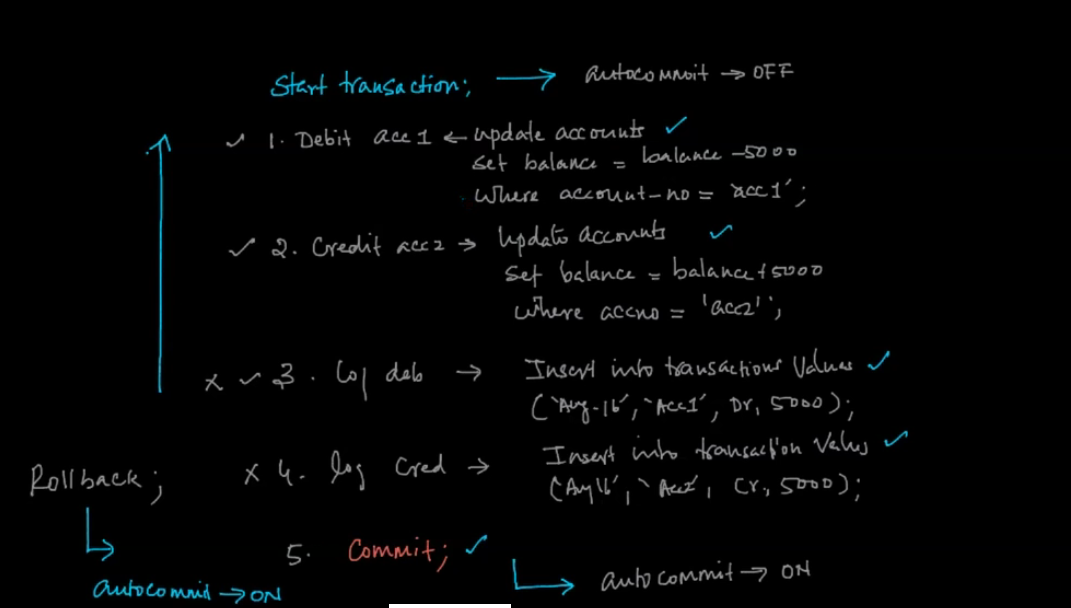 Start transaction; → autocommit → OFF
✓ 1. Debit acc 1 ← update accounts ✓
set balance = balance - 5000
where account-no = 'acc1';
✓ 2. Credit acc2 → Update accounts ✓
set balance = balance + 5000
where accno = 'acc2';
x ✓ 3. log deb → Insert into transactions Values ✓
('Aug-16', 'Acc1', Dr, 5000);
x 4. log cred → Insert into transaction Values ✓
(Aug16', 'Acc2', Cr, 5000);
Rollback;
5. Commit; ✓
autocommit → ON
autocommit → ON